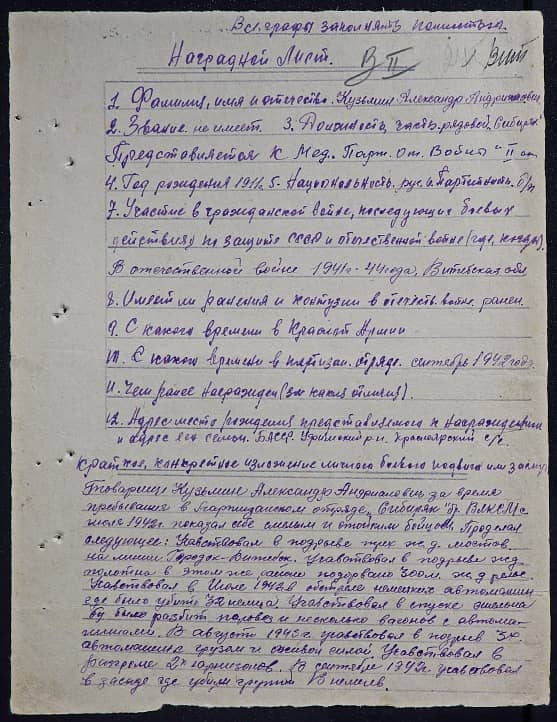 Все графы заполнять полностью.
Наградной Лист. В II
1. Фамилия, имя и отчество. Кузьмин Александр Андрианович
2. Звание. не имеет. 3. Должность, часть. рядовой "Сибиряк"
Представляется к Мед. Парт. от. Войны "II ст
4. Год рождения 1911г. 5. Национальность. рус. 6. Партийность. б/п
7. Участие в гражданской войне, последующих боевых
действиях по защите СССР и отечественной войне (где, когда).
В отечественной войне 1941г-44 года, Витебская обл
8. Имеет ли ранения и контузии в отечеств. войне. ранен.
9. С какого времени в Красной Армии
10. С какого времени в партизан. отряде. сентябрь 1942 года.
11. Чем ранее награжден (за какия отличия).
12. Адрес место рождения представляемого к награждению
и адрес его семьи. БАССР. Уфимский р-н. Красноярский с/с.
Краткое, конкретное изложение личного боевого подвига или заслуг
Товарищ Кузьмин Александр Андрианович за время
пребывания в Партизанском отряде "Сибиряк" бр. ВЛКСМ с
июля 1942г. показал себе смелым и стойким бойцом. Проделал
следующее: Учавствовал в подрыве трех ж.д. мостов
на линии Городок-Витебск. Учавствовал в подрыве жд
полотна в этом же районе подорвано 300м. ж.д. рельс.
Учавствовал в Июле 1942г. в обстреле немецких автомашин
где было убито 32 немца. Учавствовал в спуске эшелона
был разбит паровоз и несколько вагонов с автома-
шинами. В август 1943г. учавствовал в подрыв 3х.
автомашин с грузом и живой силой. Учавствовал в
разгроме 2х гарнизонов. В сентябре 1942г. учавствовал
в засаде где убили группой 13 немцев.